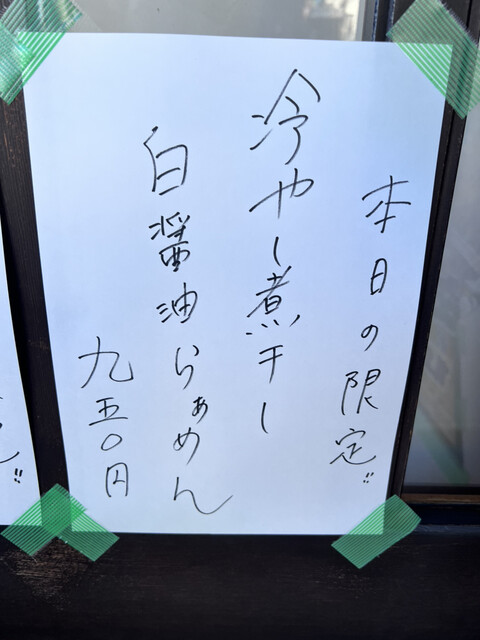 本日の限定!!
冷やし煮干し
白醤油らぁめん
九五〇円